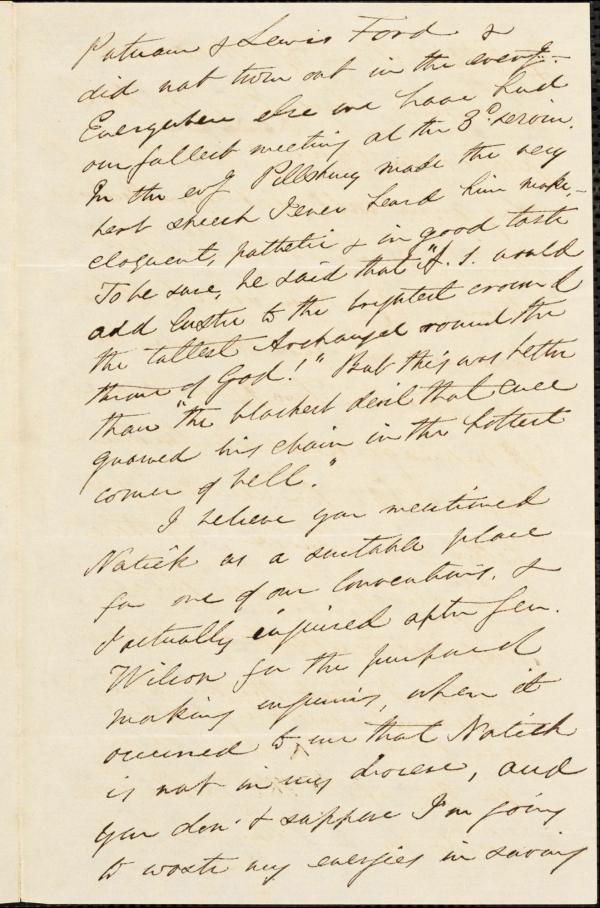 Putnam & Lewis Ford &
did not turn out in the eveng.
Everywhere else we have had
our fullest meeting at the 3d. session.
In the evg Pillsbury made the very
best speech I ever heard him make,—
eloquent, pathetic & in good taste
To be sure, he said that "A. S. would
add lustre to the brightest crown of
the tallest Archangel round the
throne of God!" But this was better
than "the blackest devil that ever
gnawed his chain in the hottest
corner of hell."
I believe you mentioned
Natick as a suitable place
for one of our Conventions, &
I actually inquired after Gen.
Wilson for the purpose of
making inquiries, when it
occurred to me that Natick
is not in my diocese, and
you don't suppose I'm going
to waste my energies in saving